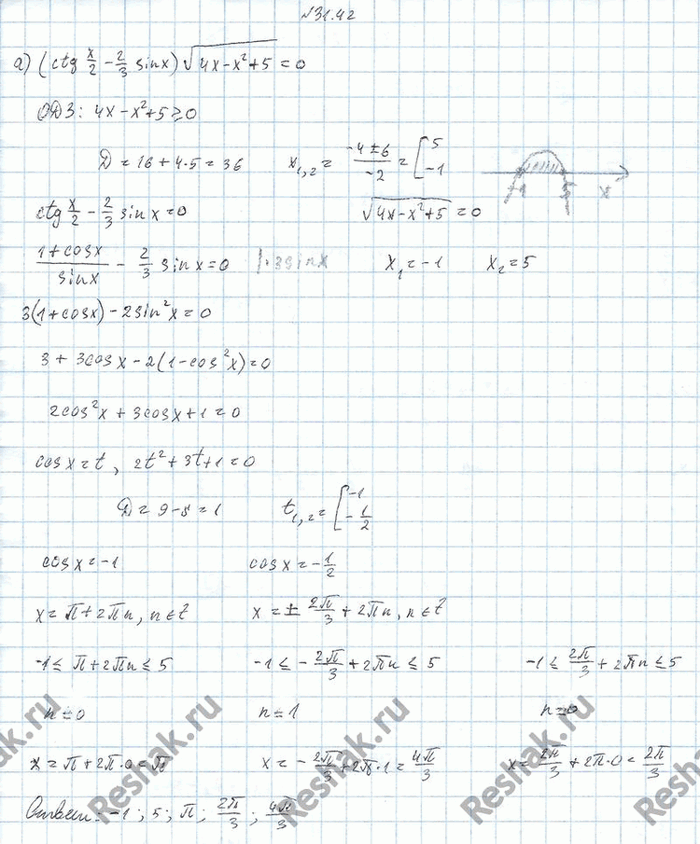 №31.42
а) (ctg x/2 - 2/3 sinx) √(4x-x²+5) = 0
ОДЗ: 4x-x²+5≥0
D = 16+4·5=36    x₁,₂ = (-4±6)/-2 = [5; -1    -1    5    x
ctg x/2 - 2/3 sin x=0    √(4x-x²+5) = 0
(1+cosx)/sinx - 2/3 sinx=0 |·3sinx    x₁=-1    x₂=5
3(1+cosx)-2sin²x=0
3+3cosx-2(1-cos²x)=0
2cos²x+3cosx+1=0
cosx=t, 2t²+3t+1=0
D=9-8=1    t₁,₂=[-1; -1/2
cosx=-1    cosx=-1/2
x=π+2πn, n∈Z    x=± 2π/3+2πn, n∈Z
-1≤π+2πn≤5    -1≤-2π/3+2πn≤5    -1≤2π/3+2πn≤5
n=0    n=1    n=0
x=π+2π·0=π    x=-2π/3+2π·1=4π/3    x=2π/3+2π·0=2π/3
Ответ: -1; 5; π; 2π/3; 4π/3
Reshak.ru
Reshak.ru
Reshak.ru
Reshak.ru